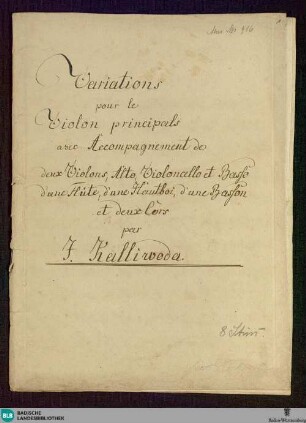 Mus. Hs. 916
Variations
pour le
Violon principals
avec Accompagnement de
deux Violons, Alto, Violoncello et Basso
d'une Flûte, d'une Hautboi, d'une Basson
et deux Côrs
par
J. Kalliwoda.
8 Stim
BLB
BADISCHE
LANDESBIBLIOTHEK
Baden-Württemberg